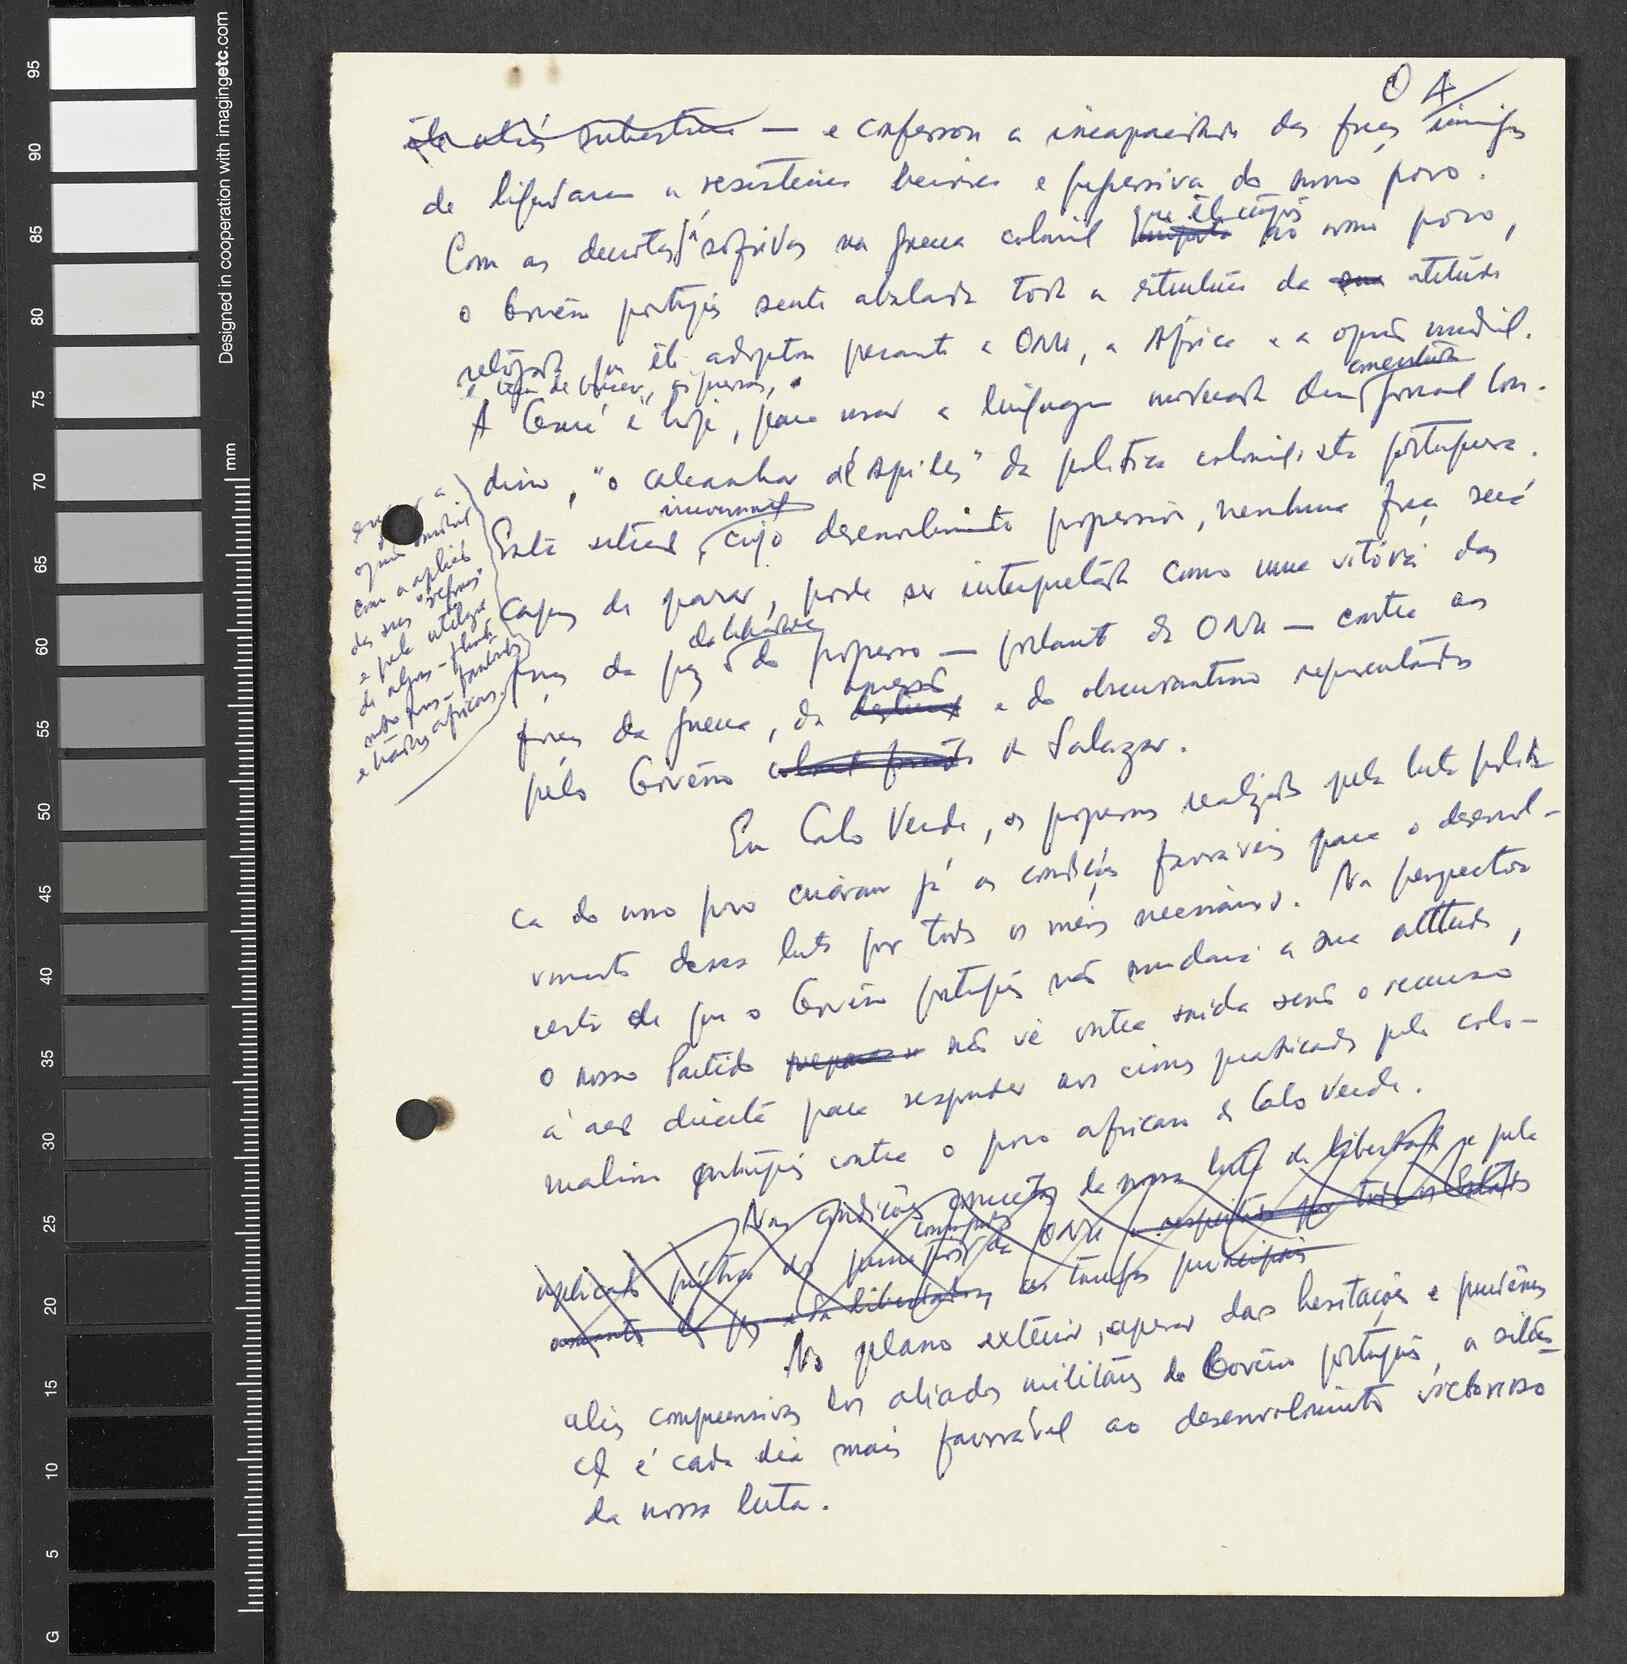 O A
— e confessou a incapacidade das forças inimigas
de liquidarem a resistência heróica e progressiva do nosso povo.
que êle impôs
Com as derrotas já sofridas na guerra colonial ao nosso povo,
o Govêrno português sente abalada toda a estrutura da sua atitude
que êle adoptou perante a ONU, a África e a opinião mundial.
A Guiné é hoje, para usar a linguagem moderada dum jornal lon-
drino, "o calcanhar de Aquiles" da política colonialista portuguesa.
Esta situação, cujo desenvolvimento progressivo, nenhuma força será
capaz de parar, pode ser interpretada como uma vitória das
da liberdade
forças da paz e do progresso — portanto da ONU — contra as
opressão
forças da guerra, da e do obscurantismo representadas
pelo Govêrno de Salazar.
com a aplicação
das suas "reformas"
e pela utilização
de alguns
e traidores africanos.
Em Cabo Verde, os progressos realizados pela luta políti-
ca do nosso povo criaram já as condições favoráveis para o desenvol-
vimento dessa luta por todos os meios necessários. Na perspectiva
certa de que o Govêrno português não mudará a sua atitude,
o nosso Partido não vê outra saída senão o recurso
à acção directa para responder aos crimes praticados pelo colo-
nialismo português contra o povo africano de Cabo Verde.
Nas condições concretas da nossa luta de libertação e pela
aplicação prática dos princípios da ONU e respeitados por todos os Estados
as tarefas principais
No plano exterior, apesar das hesitações e
dos aliados militares do Govêrno português, a situa-
ção é cada dia mais favorável ao desenvolvimento victorioso
da nossa luta.
Designed in cooperation with imagingetc.com
mm
95
90
85
80
75
70
65
60
55
50
45
40
35
30
25
20
15
10
5
G